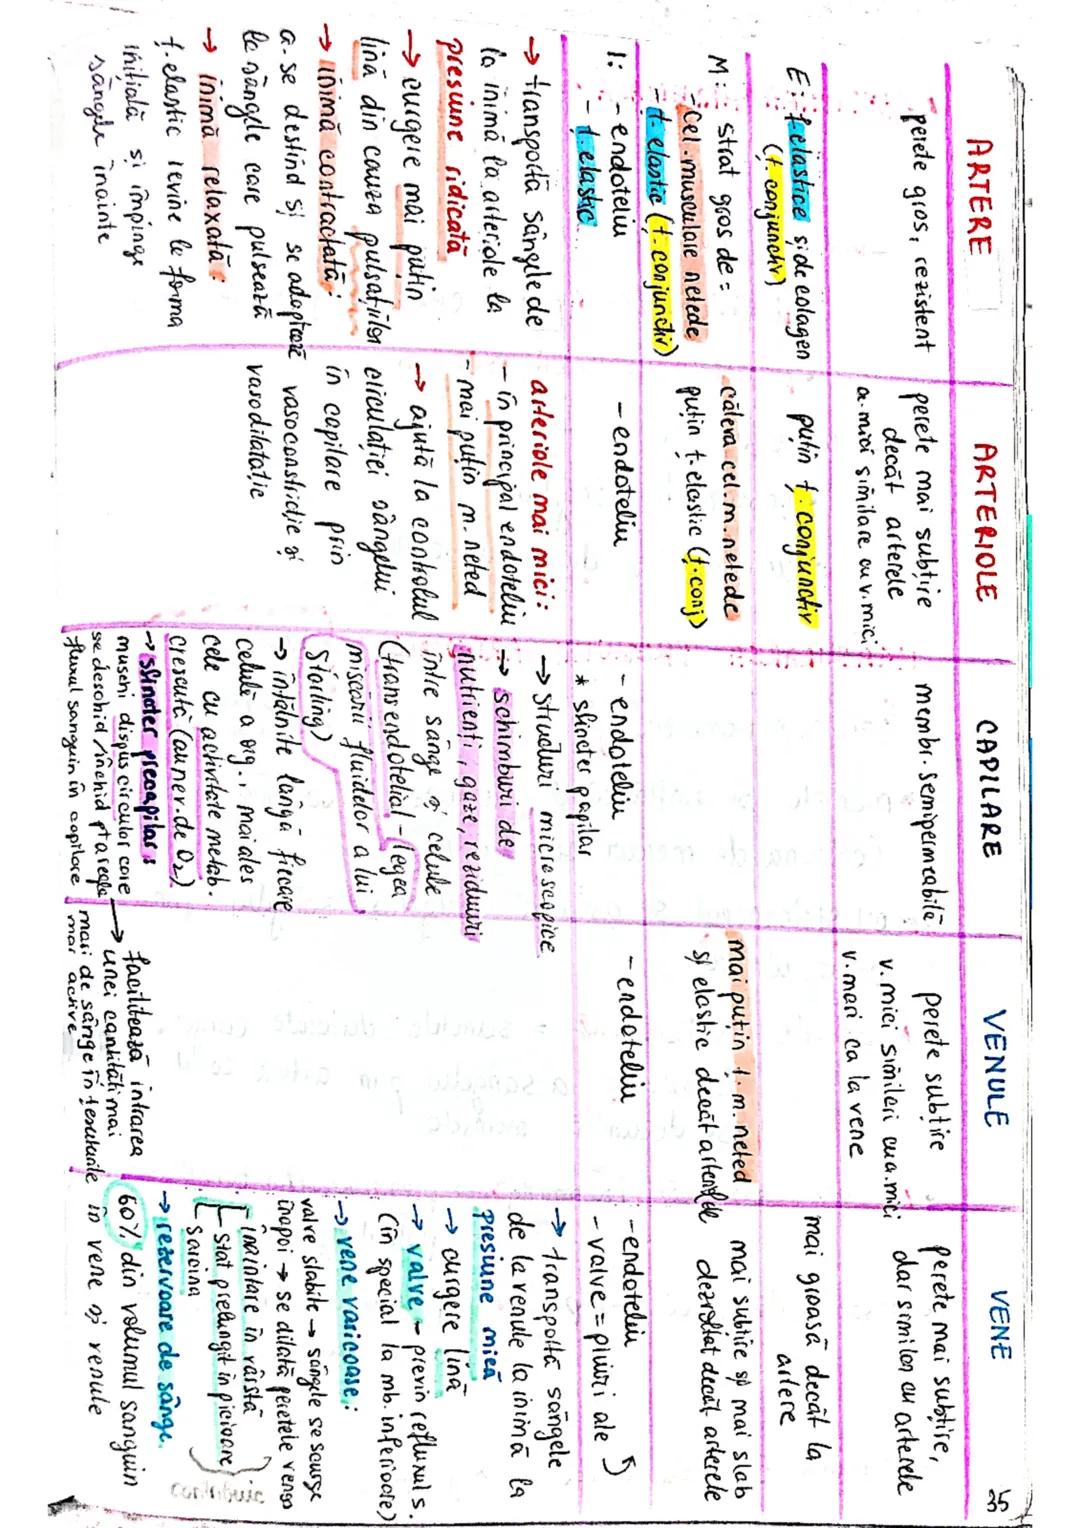 35
ARTERE
ARTERIOLE
CAPILARE
VENULE
VENE
- perete gros, rezistent
perete mai subțire
decât arterele
a. mici similare cu v. mici
membr. semipermeabilă
perete subțire
v. mici similari cu a. mici
v. mari ca la vene
perete mai subțire,
dar similar cu arterele
E: f. elastice și de colagen
(t. conjunctiv)
puțin t. conjunctiv
mai groasă decât la
artere
M: strat gros de =
- cel. musculare netede
- t. elastic (t. conjunctiv)
câteva cel. m. netede
puțin t. elastic (t. conj)
mai puțin t. m. neted
și elastic decât arterele
mai subțire și mai slab
dezvoltat decât arterele
I: - endoteliu
- t. elastic
- endoteliu
- endoteliu
* sfincter papilar
- endoteliu
- endoteliu
- valve = pliuri ale
→ transportă sângele de
la inimă la arteriole la
presiune ridicată
→ curgere mai puțin
lină din cauza pulsațiilor
→ inimă contractată:
a. se destind și se adaptează
la sângele care pulsează
→ inimă relaxată:
t. elastic revine la forma
inițială și împinge
sângele înainte
arteriole mai mici:
- în principal endoteliu
- mai puțin m. neted
→ ajută la controlul
circulației sângelui
în capilare prin
vasoconstricție și
vasodilatație
→ structuri microscopice
→ schimburi de
nutrienți, gaze, reziduuri
între sânge și celule
(transendotelial - legea
mișcării fluidelor a lui
Starling)
→ întâlnite lângă fiecare
celulă a org. mai ales
cele cu activitate metab.
crescută (au nev. de O₂)
→ sfincter precapilar:
mușchi dispus circular care
se deschid/închid pt a regla
fluxul sanguin în capilare
→ facilitează intrarea
unei cantități mai
mari de sânge în țesuturile
mai active
→ transportă sângele
de la venule la inimă la
presiune mică
→ curgere lină
→ valve - previn refluxul s.
(în special la mb. inferioare)
→ vene varicoase:
valve slabite → sângele se scurge
înapoi → se dilată peretele venos
înaintare în vârstă
stat prelungit în picioare
sarcina
contribuie
→ rezervoare de sânge.
60% din volumul sanguin
în vene și venule